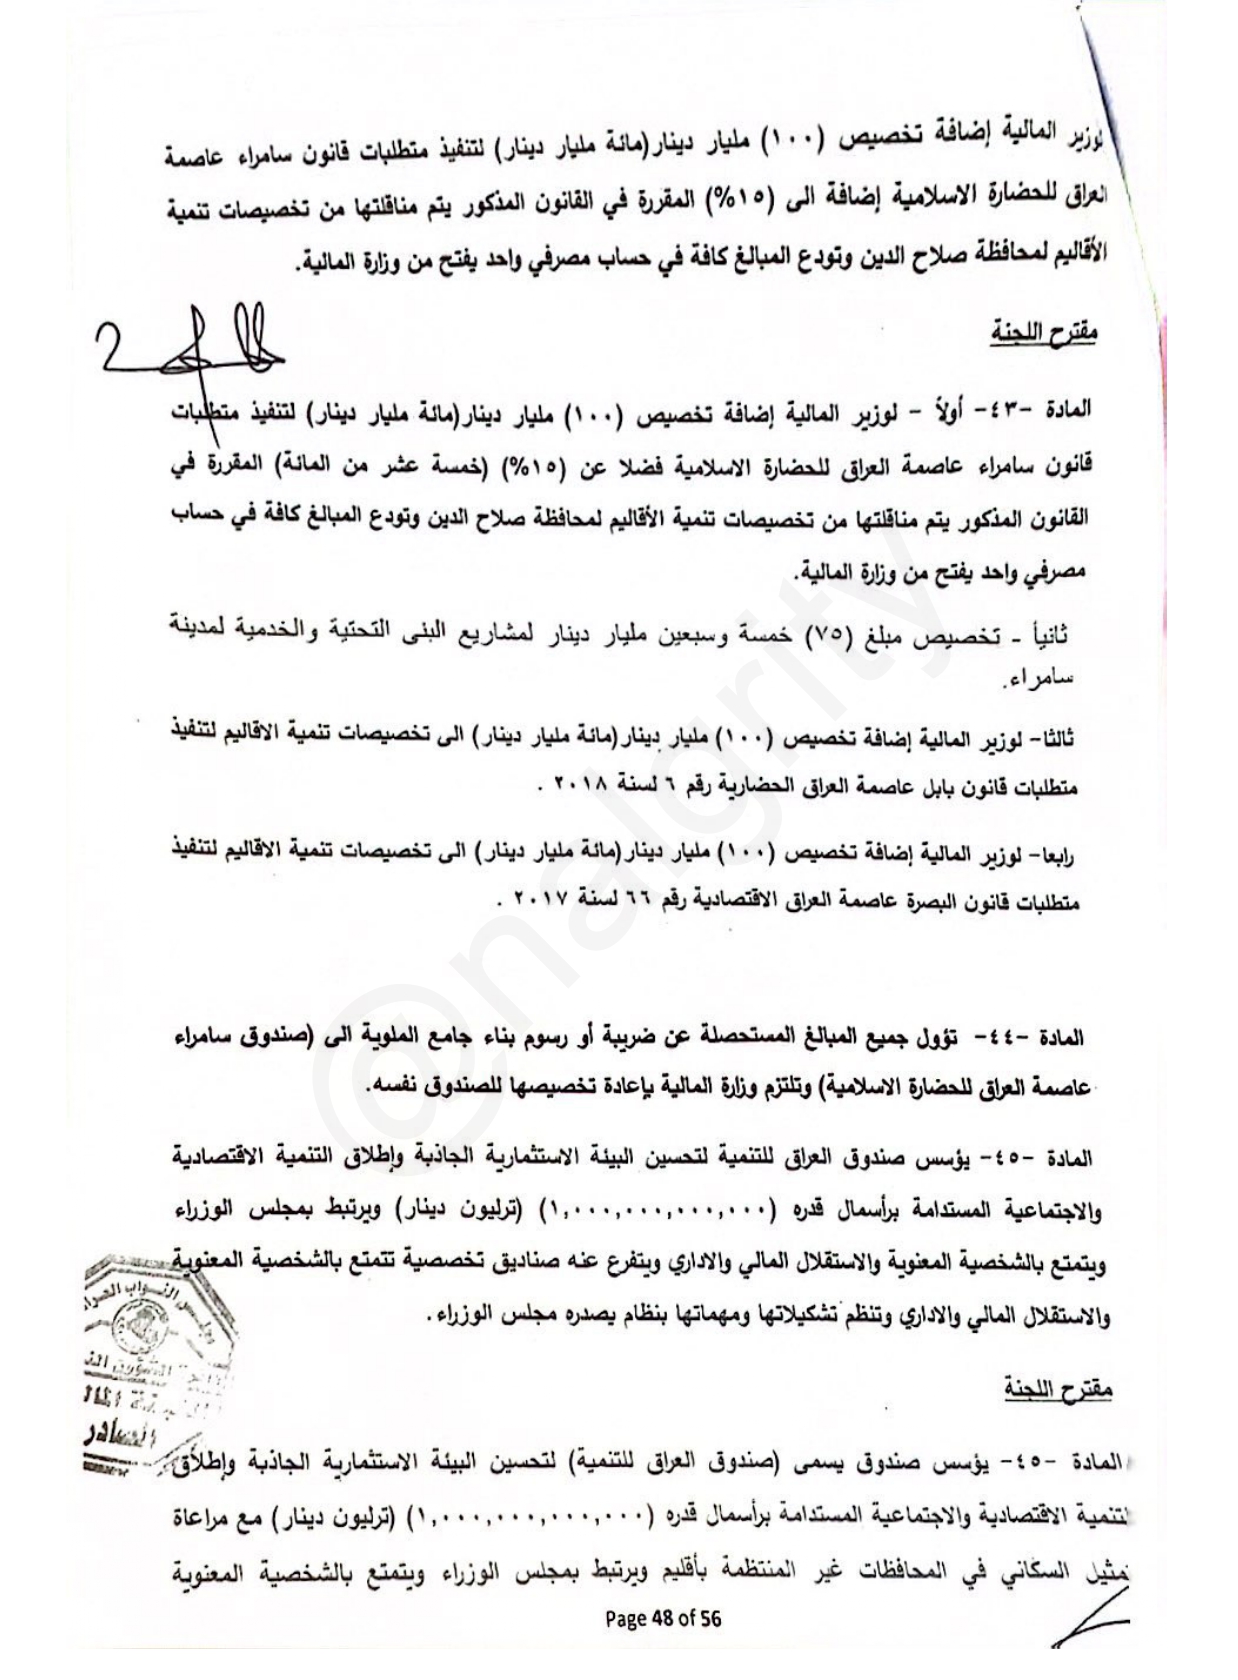 لوزير المالية إضافة تخصيص (١٠٠) مليار دينار(مائة مليار دينار) لتنفيذ متطلبات قانون سامراء عاصمة
العراق للحضارة الاسلامية إضافة الى (١٥%) المقررة في القانون المذكور يتم مناقلتها من تخصيصات تنمية
الأقاليم لمحافظة صلاح الدين وتودع المبالغ كافة في حساب مصرفي واحد يفتح من وزارة المالية.
مقترح اللجنة
المادة -٤٣- أولاً - لوزير المالية إضافة تخصيص (١٠٠) مليار دينار(مائة مليار دينار) لتنفيذ متطلبات
قانون سامراء عاصمة العراق للحضارة الاسلامية فضلا عن (١٥%) (خمسة عشر من المائة) المقررة في
القانون المذكور يتم مناقلتها من تخصيصات تنمية الأقاليم لمحافظة صلاح الدين وتودع المبالغ كافة في حساب
مصرفي واحد يفتح من وزارة المالية.
ثانيأ - تخصيص مبلغ (٧٥) خمسة وسبعين مليار دينار لمشاريع البنى التحتية والخدمية لمدينة
سامراء.
ثالثا- لوزير المالية إضافة تخصيص (١٠٠) مليار دينار(مائة مليار دينار) الى تخصيصات تنمية الاقاليم لتنفيذ
متطلبات قانون بابل عاصمة العراق الحضارية رقم ٦ لسنة ٢٠١٨ .
رابعا- لوزير المالية إضافة تخصيص (١٠٠) مليار دينار(مائة مليار دينار) الى تخصيصات تنمية الاقاليم لتنفيذ
متطلبات قانون البصرة عاصمة العراق الاقتصادية رقم ٦٦ لسنة ٢٠١٧ .
المادة -٤٤- تؤول جميع المبالغ المستحصلة عن ضريبة أو رسوم بناء جامع الملوية الى (صندوق سامراء
عاصمة العراق للحضارة الاسلامية) وتلتزم وزارة المالية بإعادة تخصيصها للصندوق نفسه.
المادة -٤٥- يؤسس صندوق العراق للتنمية لتحسين البيئة الاستثمارية الجاذبة وإطلاق التنمية الاقتصادية
والاجتماعية المستدامة برأسمال قدره (١,٠٠٠,٠٠٠,٠٠٠,٠٠٠) (ترليون دينار) ويرتبط بمجلس الوزراء
ويتمتع بالشخصية المعنوية والاستقلال المالي والاداري ويتفرع عنه صناديق تخصصية تتمتع بالشخصية المعنوية
والاستقلال المالي والاداري وتنظم تشكيلاتها ومهماتها بنظام يصدره مجلس الوزراء .
مجلس النواب العراقي
مقترح اللجنة
المادة -٤٥- يؤسس صندوق يسمى (صندوق العراق للتنمية) لتحسين البيئة الاستثمارية الجاذبة وإطلاق
لتنمية الاقتصادية والاجتماعية المستدامة برأسمال قدره (١,٠٠٠,٠٠٠,٠٠٠,٠٠٠) (ترليون دينار) مع مراعاة
تمثيل السكاني في المحافظات غير المنتظمة بأقليم ويرتبط بمجلس الوزراء ويتمتع بالشخصية المعنوية
Page 48 of 56
@nalgrity